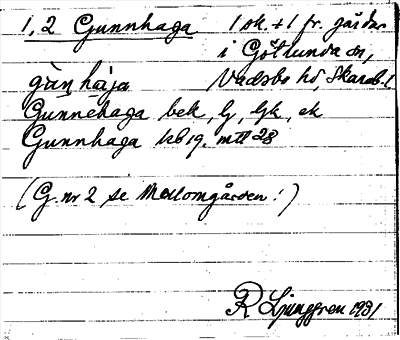 1, 2 Gunnhaga 1 sk. + 1 fr. gårdar
i Götlunda sn,
gun haja Vadsbo hd, Skarab. l.
Gunnehaga bek, G, Gk, ek
Gunnhaga kb 19. mtl 28
(G. nr 2 se Mellomgården!)
R Ljunggren 1931